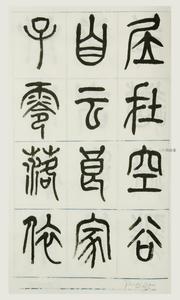 居在空谷
自云良家
子零落依